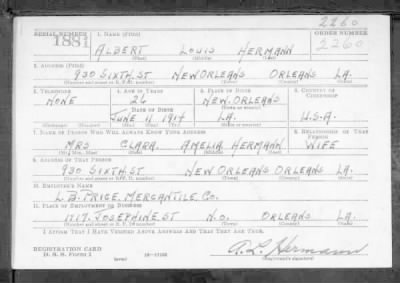 2260
SERIAL NUMBER 1. NAME (Print) ORDER NUMBER
1881 ALBERT LOUIS HERMANN 2260
(First) (Middle) (Last)
2. ADDRESS (Print)
930 SIXTH. ST NEW ORLEANS ORLEANS LA.
(Number and street or R. F. D. number) (Town) (County) (State)
3. TELEPHONE 4. AGE IN YEARS 5. PLACE OF BIRTH 6. COUNTRY OF CITIZENSHIP
NONE 26 NEW. ORLEANS
DATE OF BIRTH (Town or county)
JUNE 11 1914 LA. U.S.A.
(Mo.) (Day) (Yr.) (State or country)
7. NAME OF PERSON WHO WILL ALWAYS KNOW YOUR ADDRESS 8. RELATIONSHIP OF THAT PERSON
MRS CLARA. AMELIA HERMANN WIFE
(Mr., Mrs., Miss) (First) (Middle) (Last)
9. ADDRESS OF THAT PERSON
930 SIXTH. ST. NEW ORLEANS ORLEANS LA.
(Number and street or R. F. D. number) (Town) (County) (State)
10. EMPLOYER'S NAME
L. B. PRICE. MERCANTILE. CO.
11. PLACE OF EMPLOYMENT OR BUSINESS
1717. JOSEPHINE. ST N.O. ORLEANS LA.
(Number and street or R. F. D. number) (Town) (County) (State)
I AFFIRM THAT I HAVE VERIFIED ABOVE ANSWERS AND THAT THEY ARE TRUE.
REGISTRATION CARD
D. S. S. Form 1 (over) A. L. Hermann
(Registrant's signature)